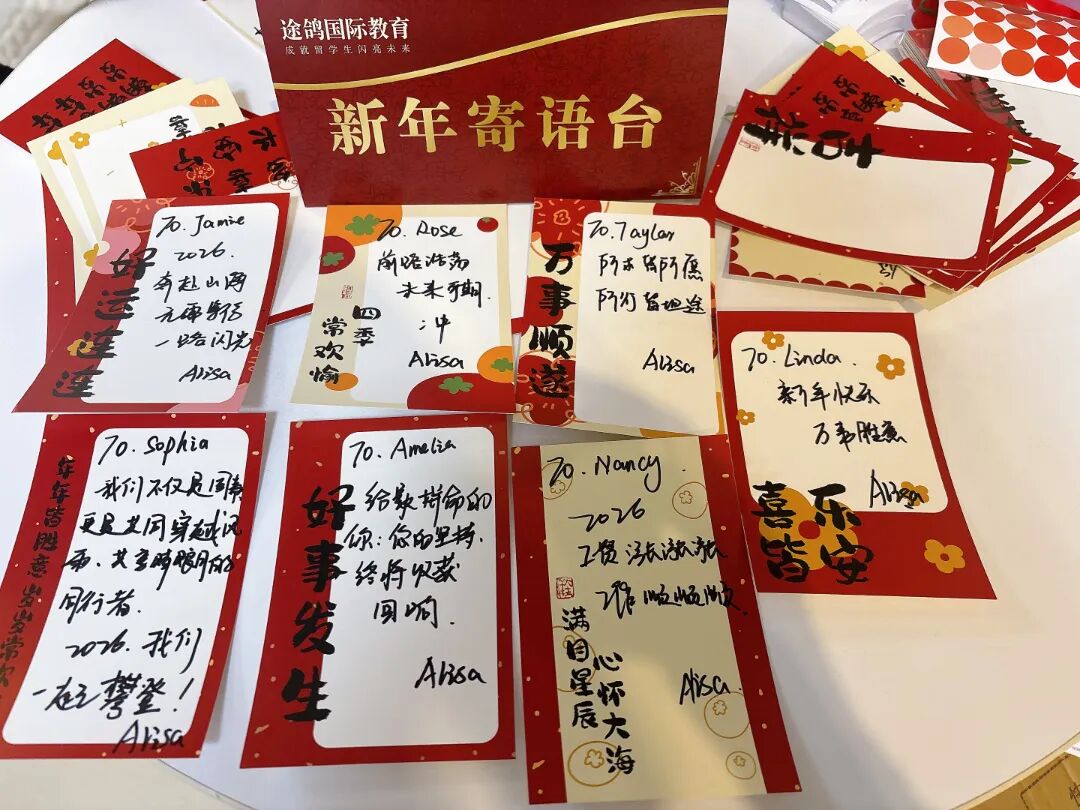 途鸽国际教育
成就留学生闪亮未来
新年寄语台
好运连连
To. Jamie
2026.
奔赴山海
一路闪光
Alisa
四季
常欢愉
To. Rose
前路浩荡
未来可期.
冲
Alisa
万事顺遂
To. Taylor
所求皆所愿
所行皆坦途
Alisa
To. Linda.
新年快乐
万事胜意
Alisa
喜乐
皆安
年年皆胜意岁岁常欢
To. Sophia
我们不仅是同事
更是共同穿越风
雨、共享
同行者.
2026. 我们
一起攀登!
Alisa
好事发生
To. Amelia
给最拼命的
你: 您的坚持,
终将收获
回响.
Alisa
To. Nancy.
2026
工资涨涨涨
工作顺顺顺.
Alisa
满目星辰
心怀大海